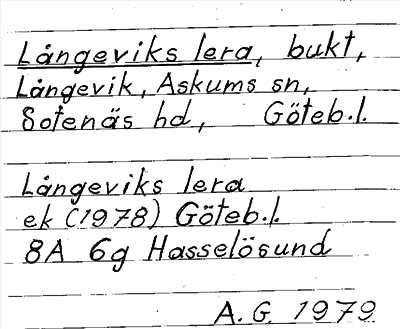 Långeviks lera, bukt,
Långevik, Askums sn,
Sotenäs hd, Göteb.l.
Långeviks lera
ek (1978) Göteb.l.
8A 6g Hasselösund
A.G. 1979